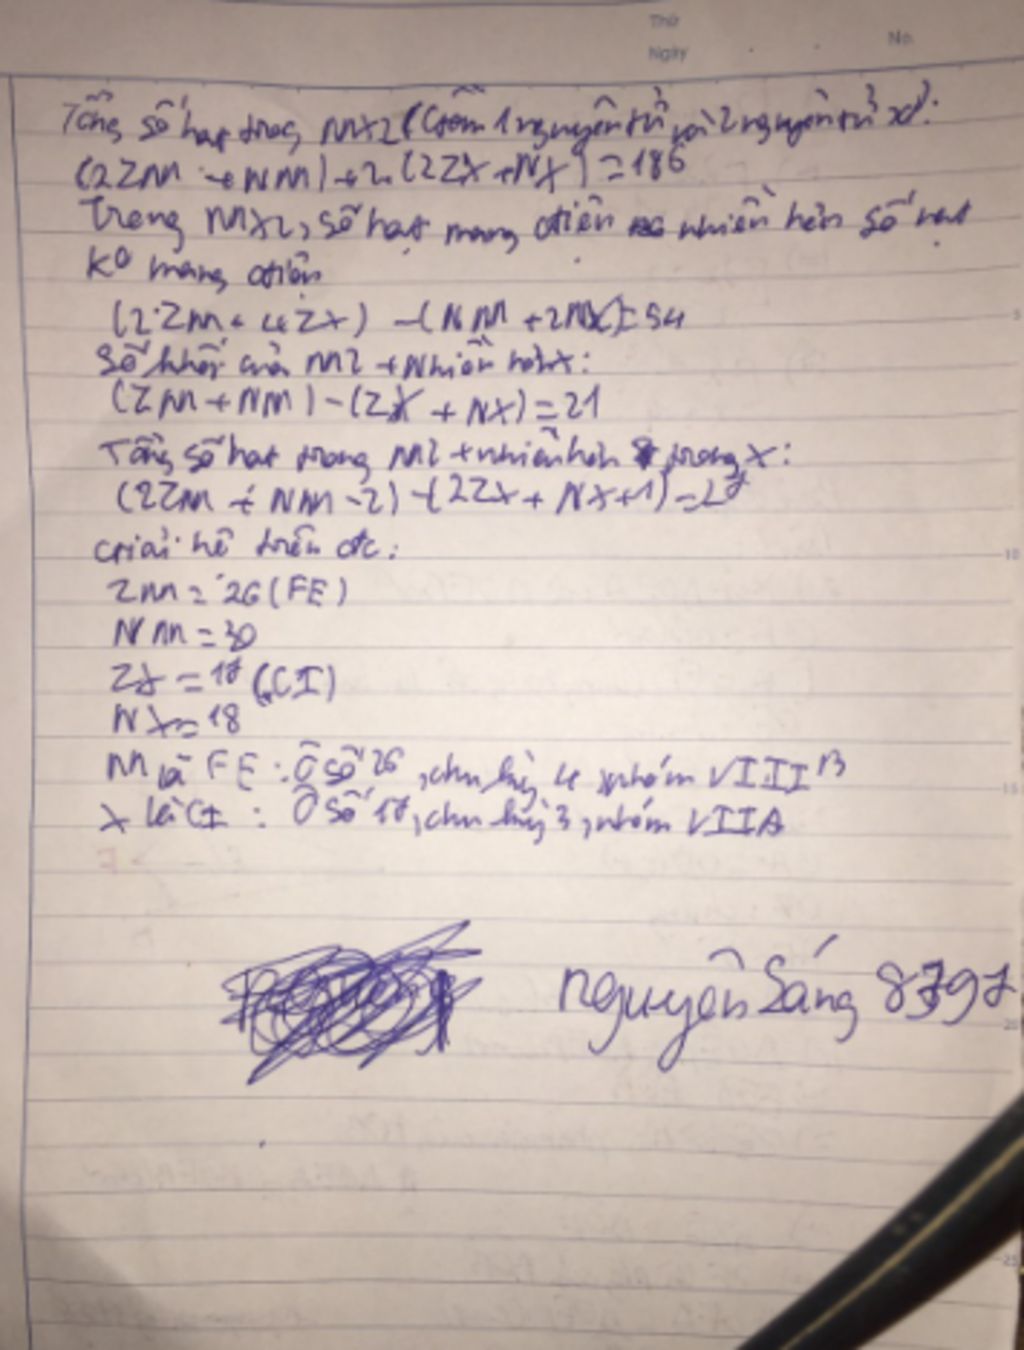 Thứ
Ngày
No.
Tổng số hạt trong MX2 (Gồm 1 nguyên tử và 2 nguyên tử x):
(2ZM + NM) + 2.(2ZX + NX) = 186
Trong MX2, số hạt mang điện nhiều hơn số hạt
ko mang điện
(2.ZM + 4ZX) - (NM + 2NX) = 54
Số khối của M2+ nhiều hơn x:
(ZM + NM) - (ZX + NX) = 21
Tổng số hạt trong M2+ nhiều hơn trong x:
(2ZM + NM - 2) - (2ZX + NX + 1) = 27
Giải hệ trên đc:
ZM = 26 (FE)
NM = 30
ZX = 17 (CI)
NX = 18
M là FE: Ô số 26, chu kỳ 4 nhóm VIIIB
X là CI: Ô số 17, chu kỳ 3, nhóm VIIA
Nguyễn Sáng 8797
5
10
15
20
25